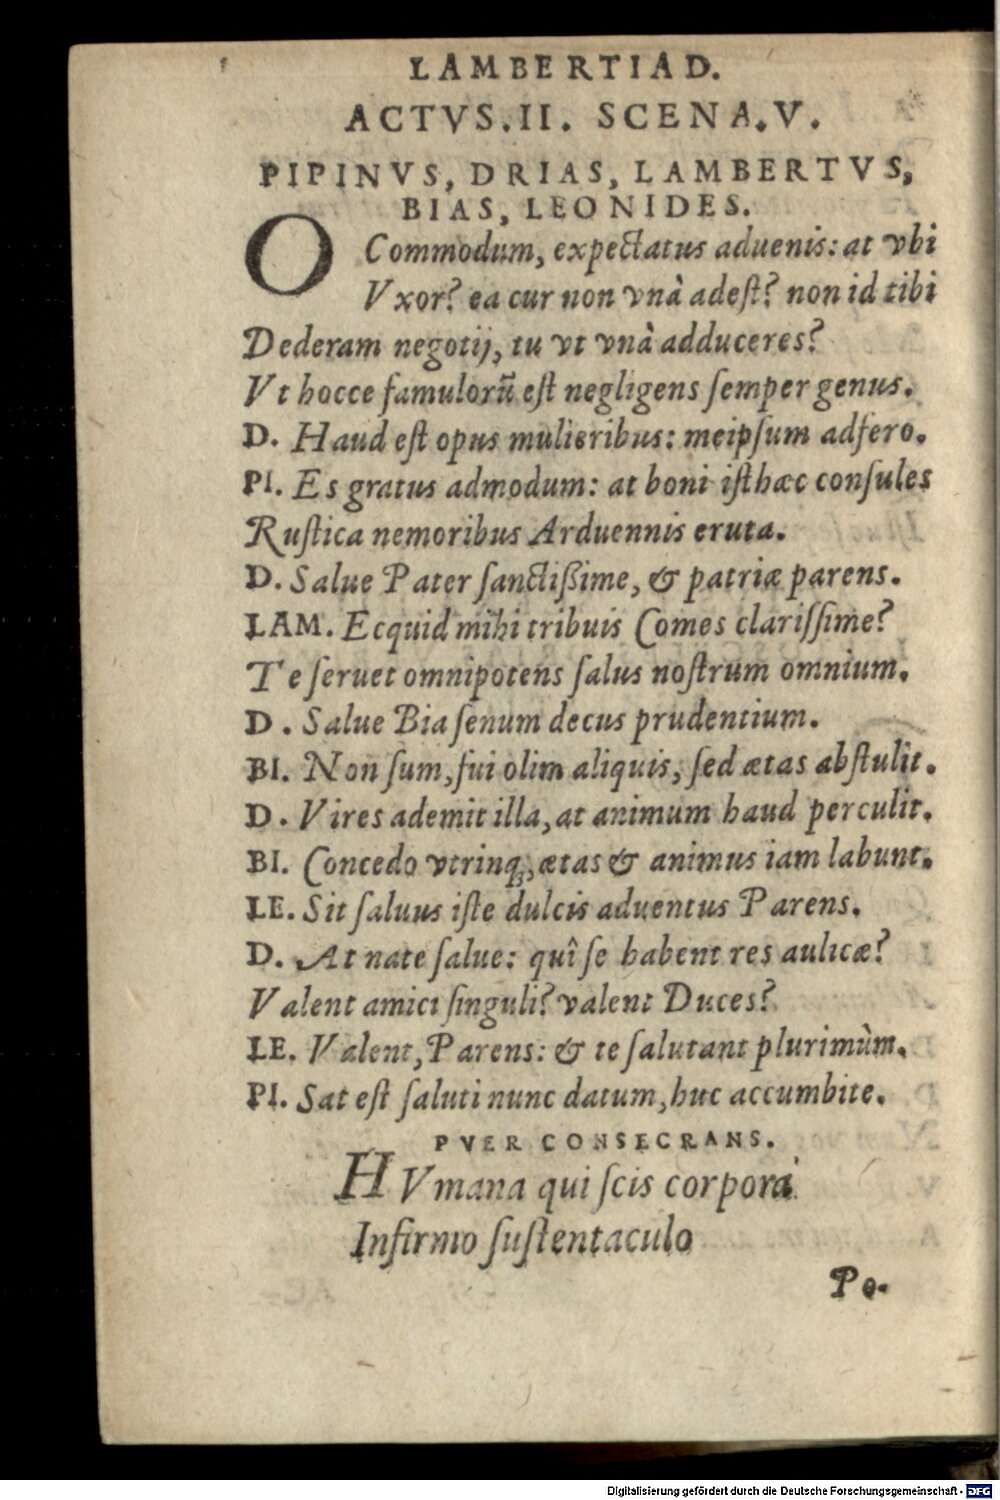 LAMBERTIAD.
ACTVS.II. SCENA.V.
PIPINVS, DRIAS, LAMBERTVS,
BIAS, LEONIDES.
O Commodum, expectatus aduenis: at vbi
Vxor? ea cur non vnà adeſt? non id tibi
Dederam negotij, tu vt vnà adduceres?
Vt hocce famulorũ eſt negligens ſemper genus.
D. Haud eſt opus mulieribus: meipſum adfero.
PI. Es gratus admodum: at boni iſthæc conſules
Ruſtica nemoribus Arduennis eruta.
D. Salue Pater ſanctiſſime, & patriæ parens.
LAM. Ecquid mihi tribuis Comes clariſſime?
Te ſeruet omnipotens ſalus noſtrum omnium.
D. Salue Bia ſenum decus prudentium.
BI. Non ſum, fui olim aliquis, ſed ætas abſtulit.
D. Vires ademit illa, at animum haud perculit.
BI. Concedo vtrinq;, ætas & animus iam labunt.
LE. Sit ſaluus iſte dulcis aduentus Parens.
D. At nate ſalue: quî ſe habent res aulicæ?
Valent amici ſinguli? valent Duces?
LE. Valent, Parens: & te ſalutant plurimùm.
PI. Sat eſt ſaluti nunc datum, huc accumbite.
PVER CONSECRANS.
HVmana qui ſcis corpora
Infirmo ſuſtentaculo
Po-
Digitalisierung gefördert durch die Deutsche Forschungsgemeinschaft - DFG